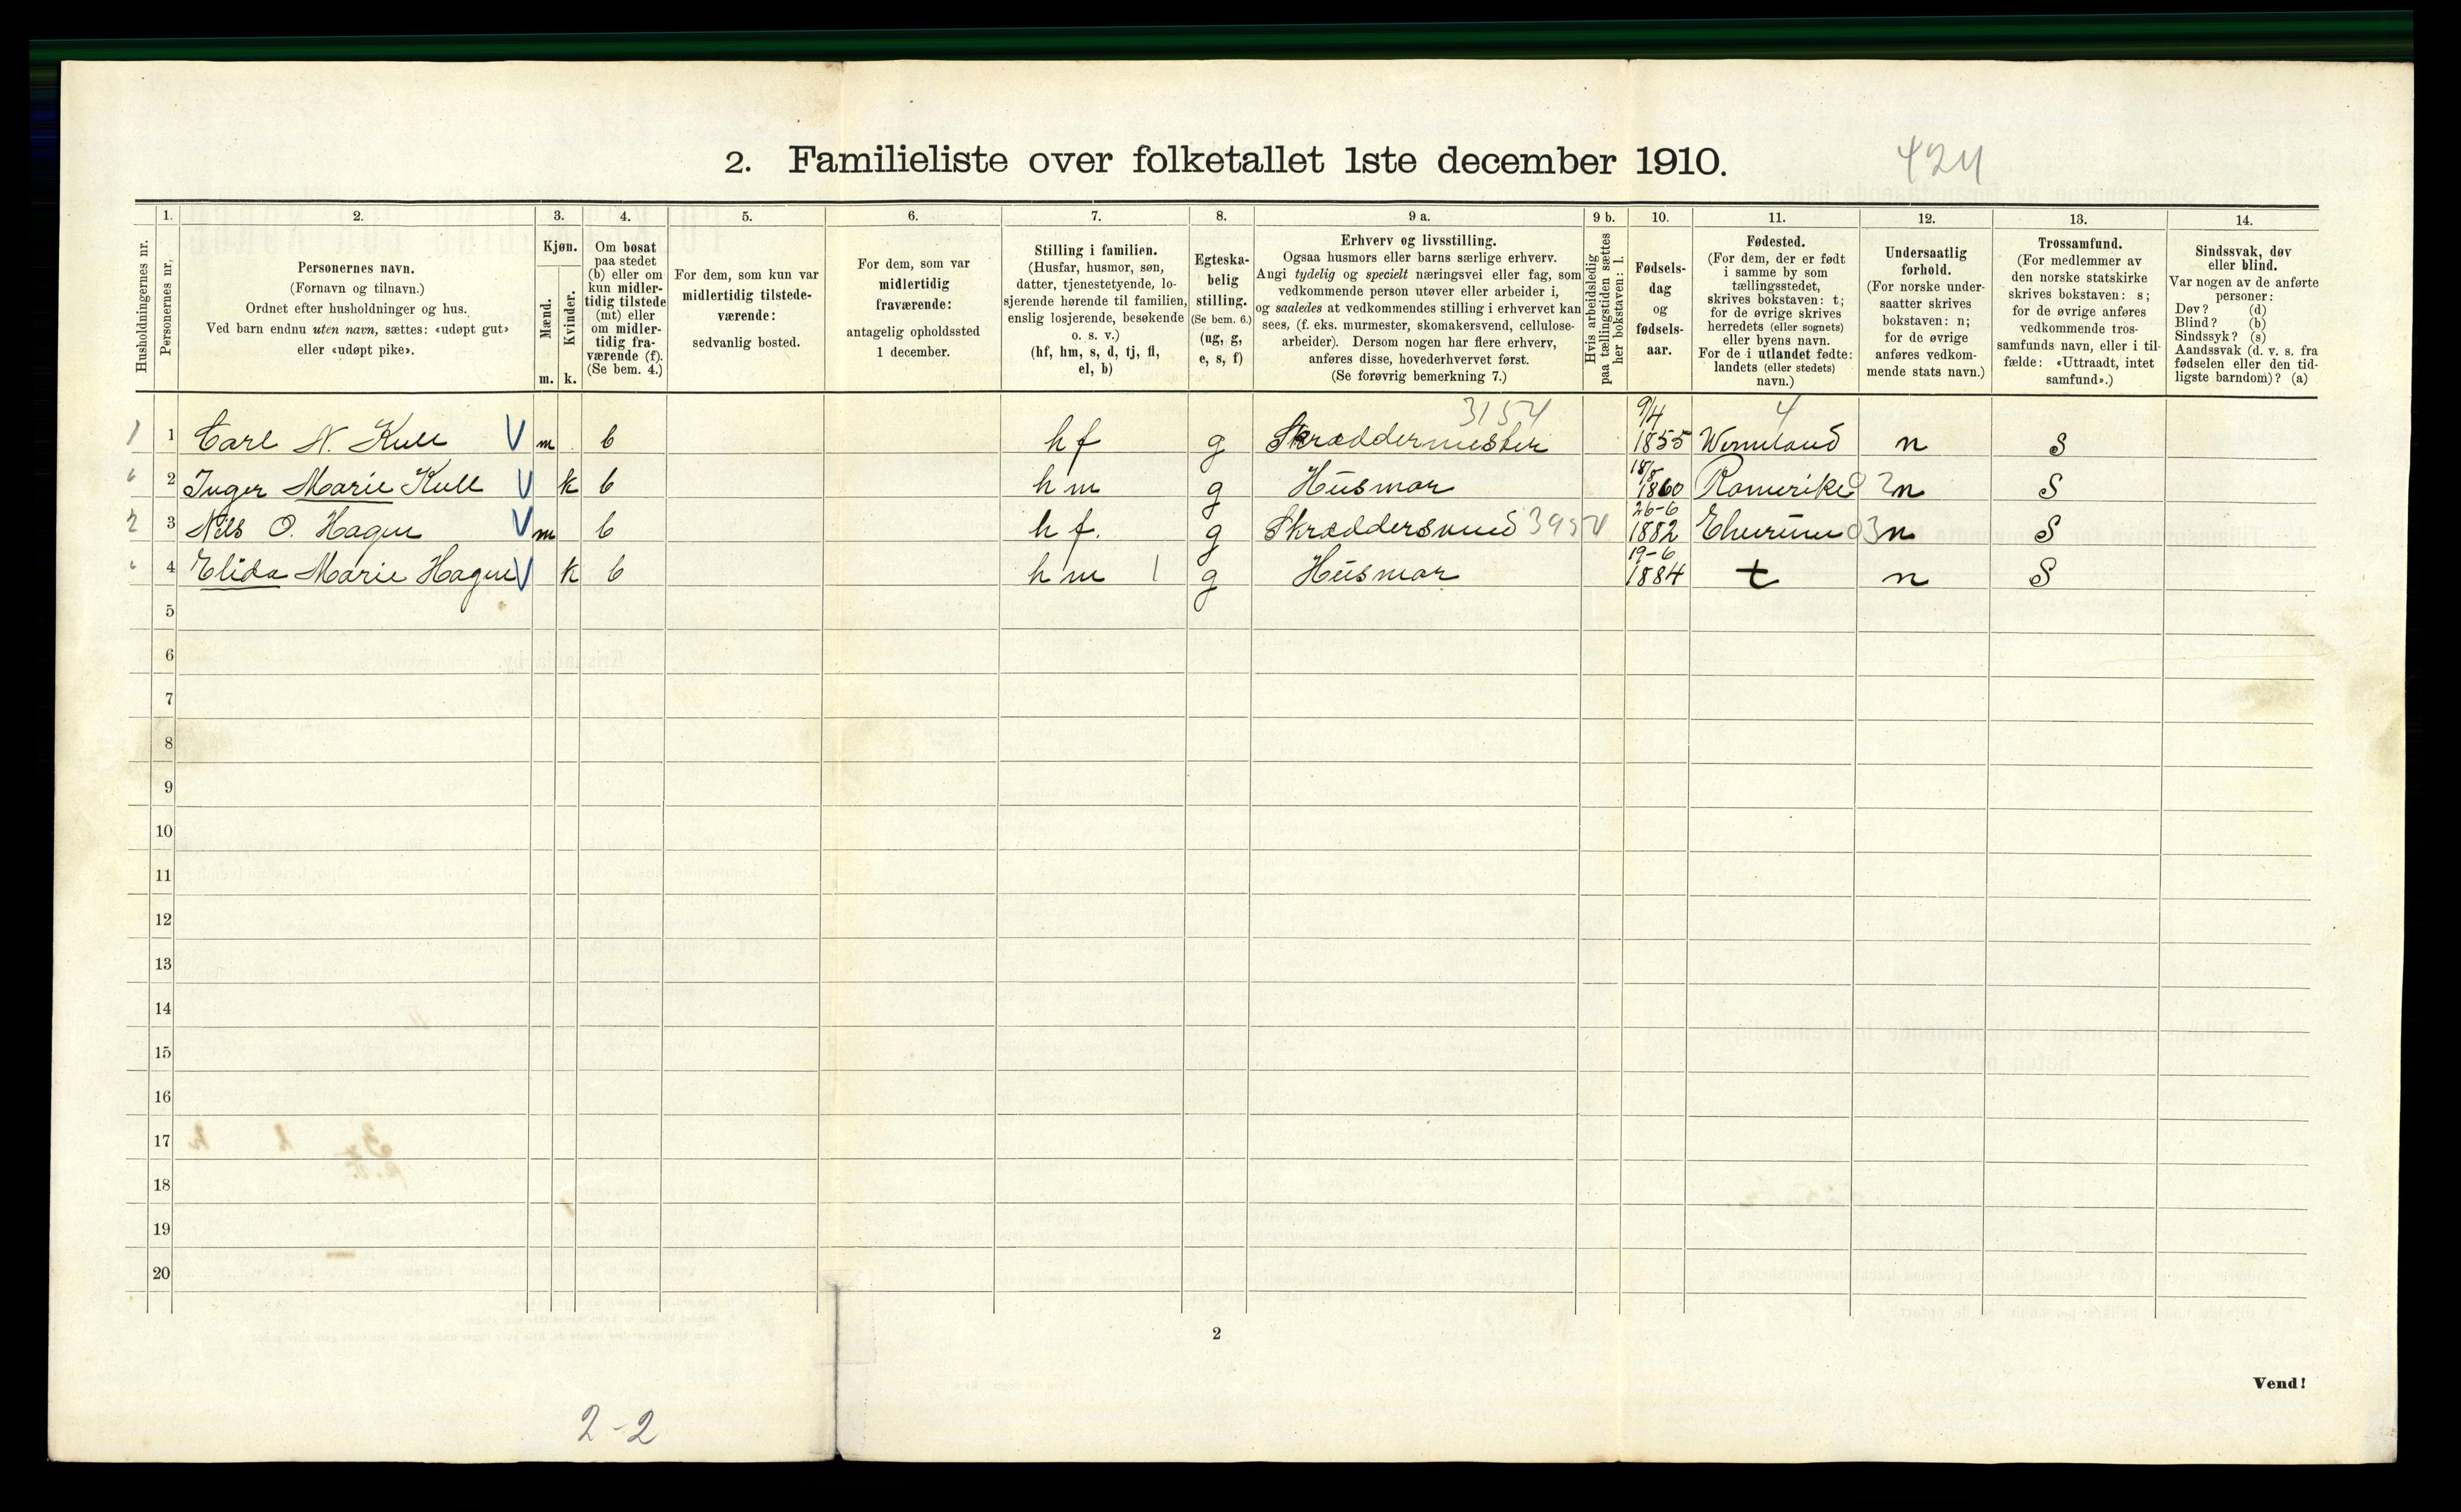 2. Familieliste over folketallet 1ste december 1910.
424
Husholdningernes nr.
1.
Personernes nr.
2.
Personernes navn.
(Fornavn og tilnavn.)
Ordnet efter husholdninger og hus.
Ved barn endnu uten navn, sættes: «udøpt gut»
eller «udøpt pike».
3.
Kjøn.
Mænd.
m.
Kvinder.
k.
4.
Om bosat
paa stedet
(b) eller om
kun midler-
tidig tilstede
(mt) eller
om midler-
tidig fra-
værende (f).
(Se bem. 4.)
5.
For dem, som kun var
midlertidig tilstede-
værende:
sedvanlig bosted.
6.
For dem, som var
midlertidig
fraværende:
antagelig opholdssted
1 december.
7.
Stilling i familien.
(Husfar, husmor, søn,
datter, tjenestetyende, lo-
sjerende hørende til familien,
enslig losjerende, besøkende
o. s. v.)
(hf, hm, s, d, tj, fl,
el, b)
8.
Egteska-
belig
stilling.
(Se bem. 6.)
(ug, g,
e, s, f)
9 a.
Erhverv og livsstilling.
Ogsaa husmors eller barns særlige erhverv.
Angi tydelig og specielt næringsvei eller fag, som
vedkommende person utøver eller arbeider i,
og saaledes at vedkommendes stilling i erhvervet kan
sees, (f. eks. murmester, skomakersvend, cellulose-
arbeider). Dersom nogen har flere erhverv,
anføres disse, hovederhvervet først.
(Se forøvrig bemerkning 7.)
9 b.
Hvis arbeidsledig
paa tællingstiden sættes
her bokstaven: l.
10.
Fødsels-
dag
og
fødsels-
aar.
11.
Fødested.
(For dem, der er født
i samme by som
tællingsstedet,
skrives bokstaven: t;
for de øvrige skrives
herredets (eller sognets)
eller byens navn.
For de i utlandet fødte:
landets (eller stedets)
navn.)
12.
Undersaatlig
forhold.
(For norske under-
saatter skrives
bokstaven: n;
for de øvrige
anføres vedkom-
mende stats navn.)
13.
Trossamfund.
(For medlemmer av
den norske statskirke
skrives bokstaven: s;
for de øvrige anføres
vedkommende tros-
samfunds navn, eller i til-
fælde: «Uttraadt, intet
samfund».)
14.
Sindssvak, døv
eller blind.
Var nogen av de anførte
personer:
Døv? (d)
Blind? (b)
Sindssyk? (s)
Aandssvak (d. v. s. fra
fødselen eller den tid-
ligste barndom)? (a)
3154 9/4 4
1 1 Carl N. Kull V m b hf g Skræddermester 1855 Wermland n S
2 Inger Marie Kull V k b hm g Husmor 18/8 1860 Romerike 02 n S
2 3 Nils O. Hagen V m b hf. g Skræddersvend 26-6 1882 Elverum 03 n S
4 Elida Marie Hagen V k b hm 1 g Husmor 19-6 1884 t n S
5
6
7
8
9
10
11
12
13
14
15
16
17
18
19
20
2
Vend!
2-2